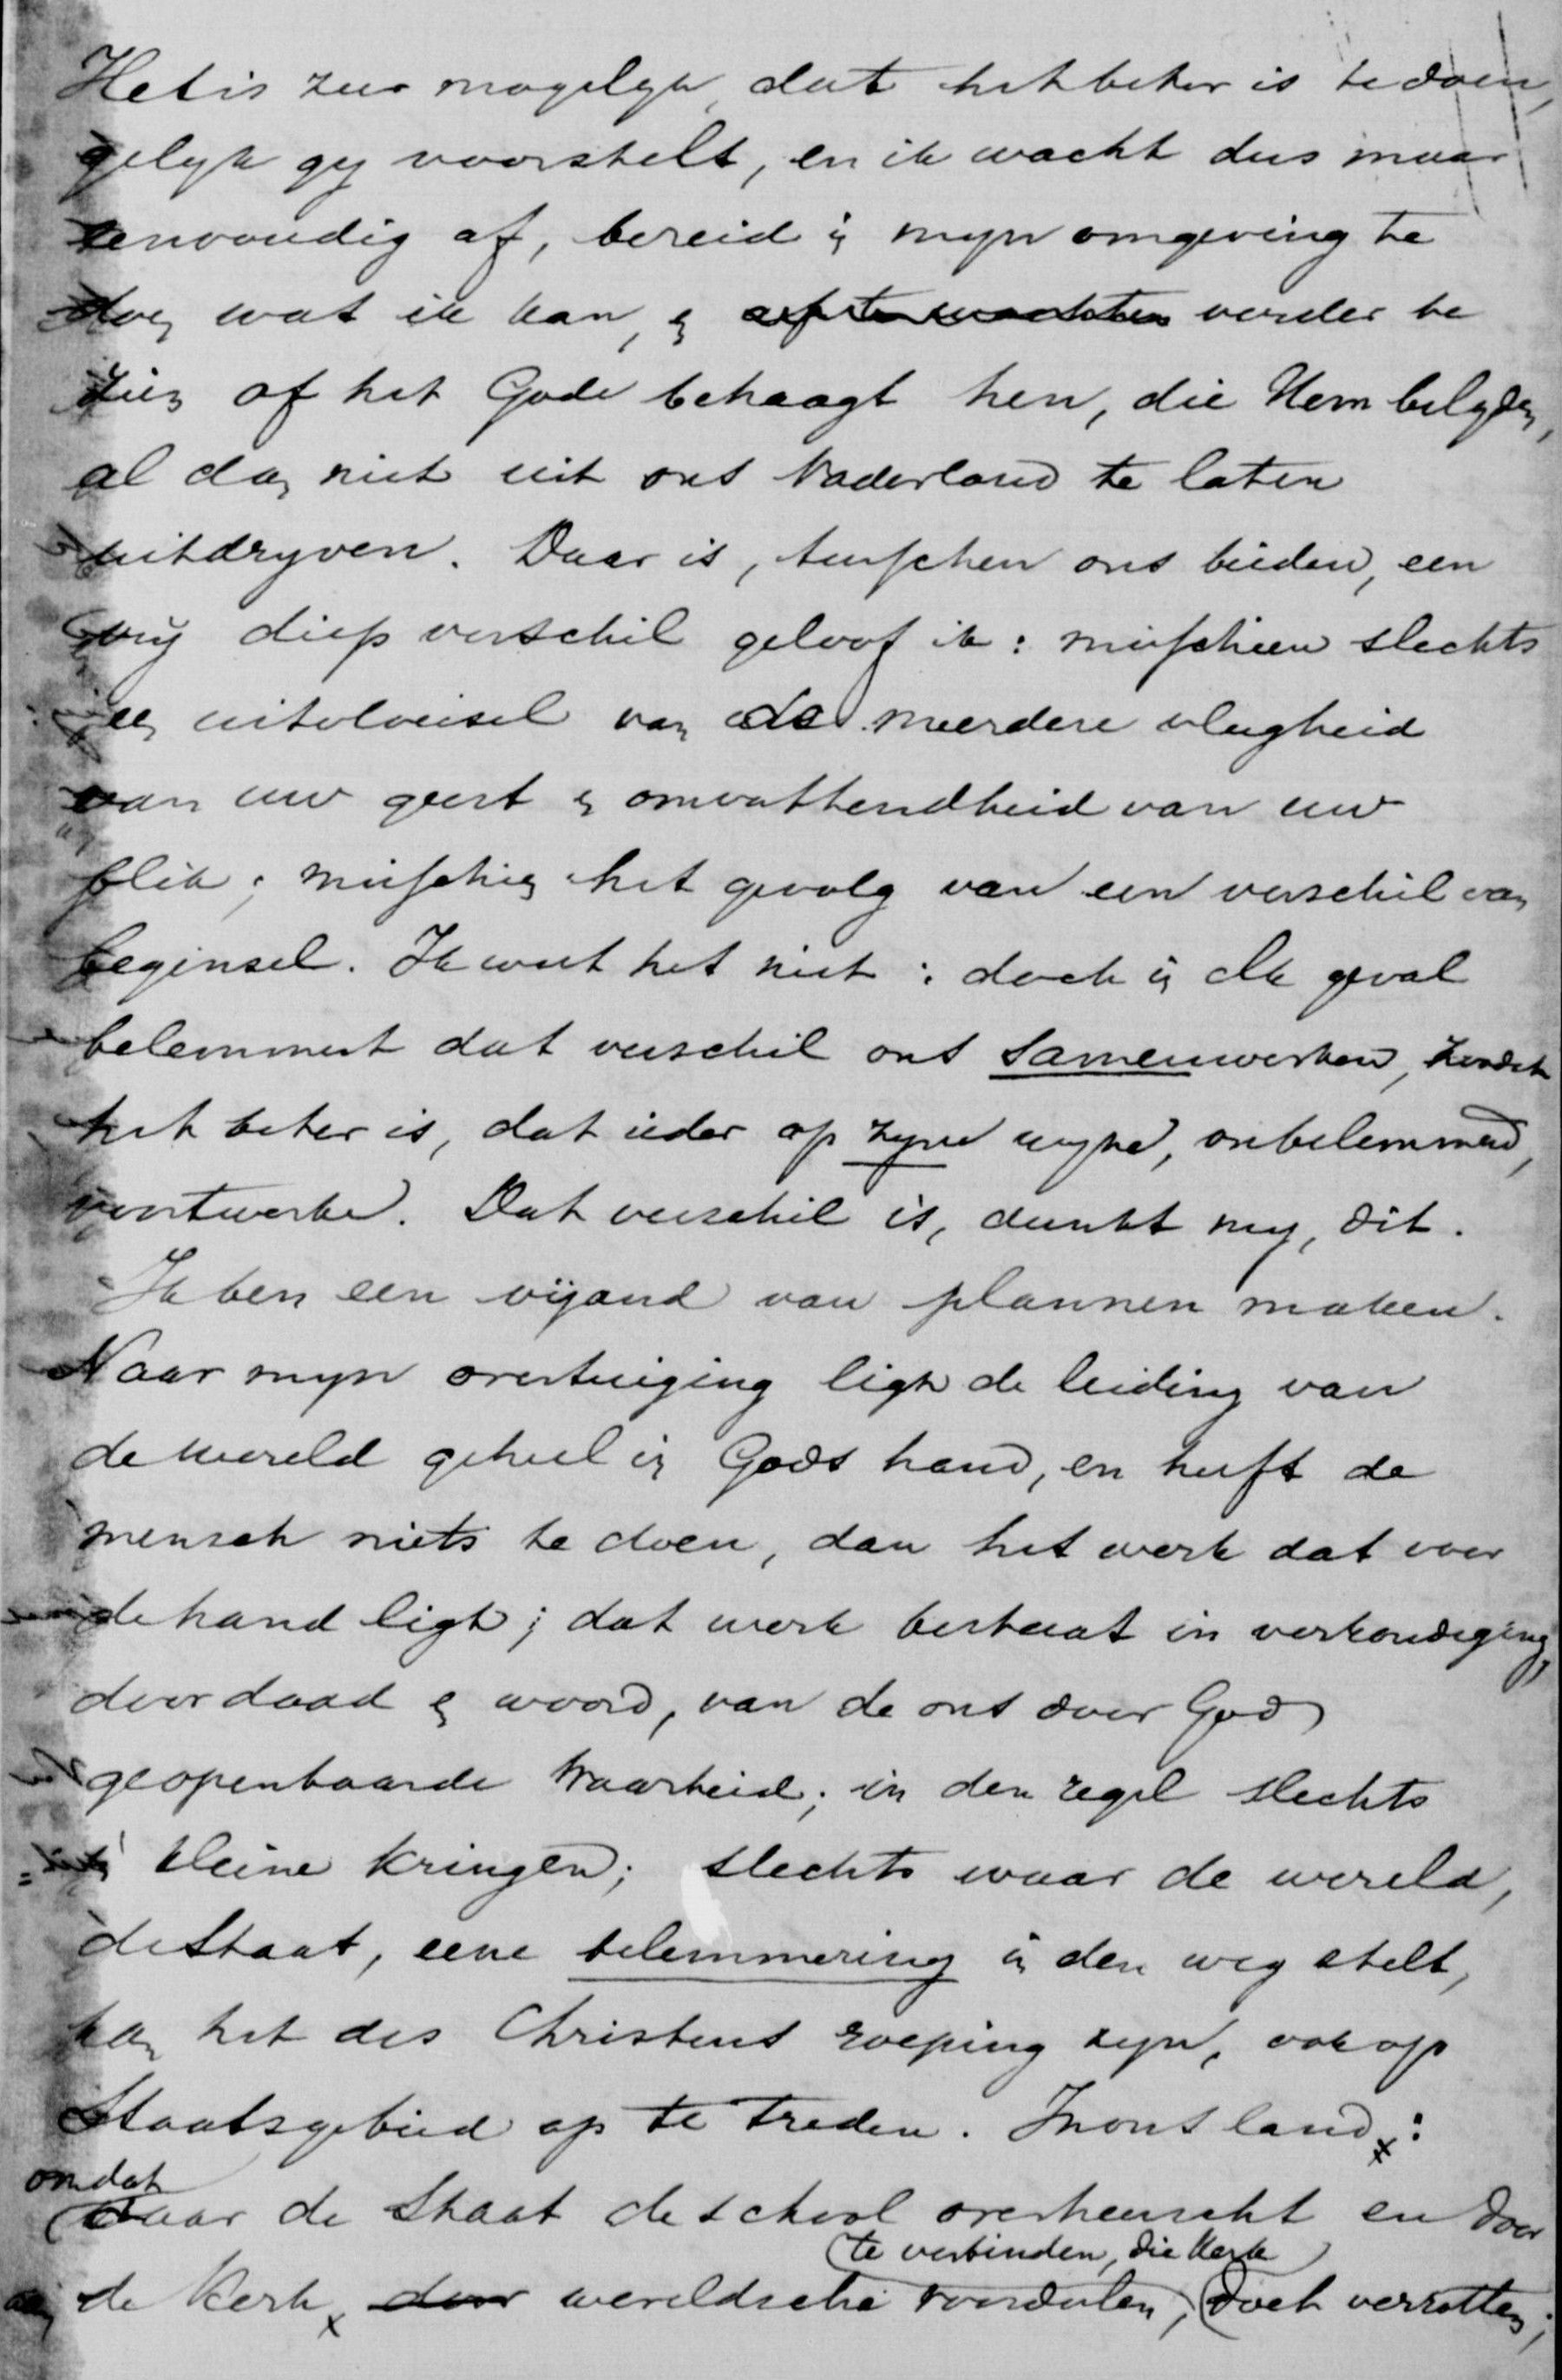 Het is zeer mogelyk, dat het beter is te doen,
gelyk gy voorstelt, en ik wacht dus maar
eenvoudig af, bereid in myn omgeving te
doen wat ik kan, en af te wachten verder te
zien of het Gode behaagt hen, die Hem belyden,
al dan niet uit ons Vaderland te laten
uitdryven. Daar is, tusschen ons beiden, een
vry diep verschil geloof ik: misschien slechts
een uitvloeisel van de meerdere vlugheid
van uw geest en omvattendheid van uw
blik; misschien het gevolg van een verschil van
beginsel. Ik weet het niet: doch in elk geval
belemmert dat verschil ons samenwerken, zoodat
het beter is, dat ieder op zyne wyze, onbelemmerd,
voortwerke. Dat verschil is, dunkt my, dit.
Ik ben een vijand van plannen maken.
Naar myn overtuiging ligt de leiding van
de wereld geheel in Gods hand, en heeft de
mensch niets te doen, dan het werk dat voor
de hand ligt; dat werk bestaat in verkondiging,
door daad en woord, van de ons door God
geopenbaarde Waarheid; in den regel slechts
in kleine kringen; slechts waar de wereld,
de Staat, eene belemmering in den weg stelt,
kan het des Christens roeping zyn, ook op
Staatsgebied op te treden. In ons land:
omdat
daar de Staat de school overheerscht en door
te verbinden, die Kerk
de Kerk door wereldsche voordeelen, doet verrotten;